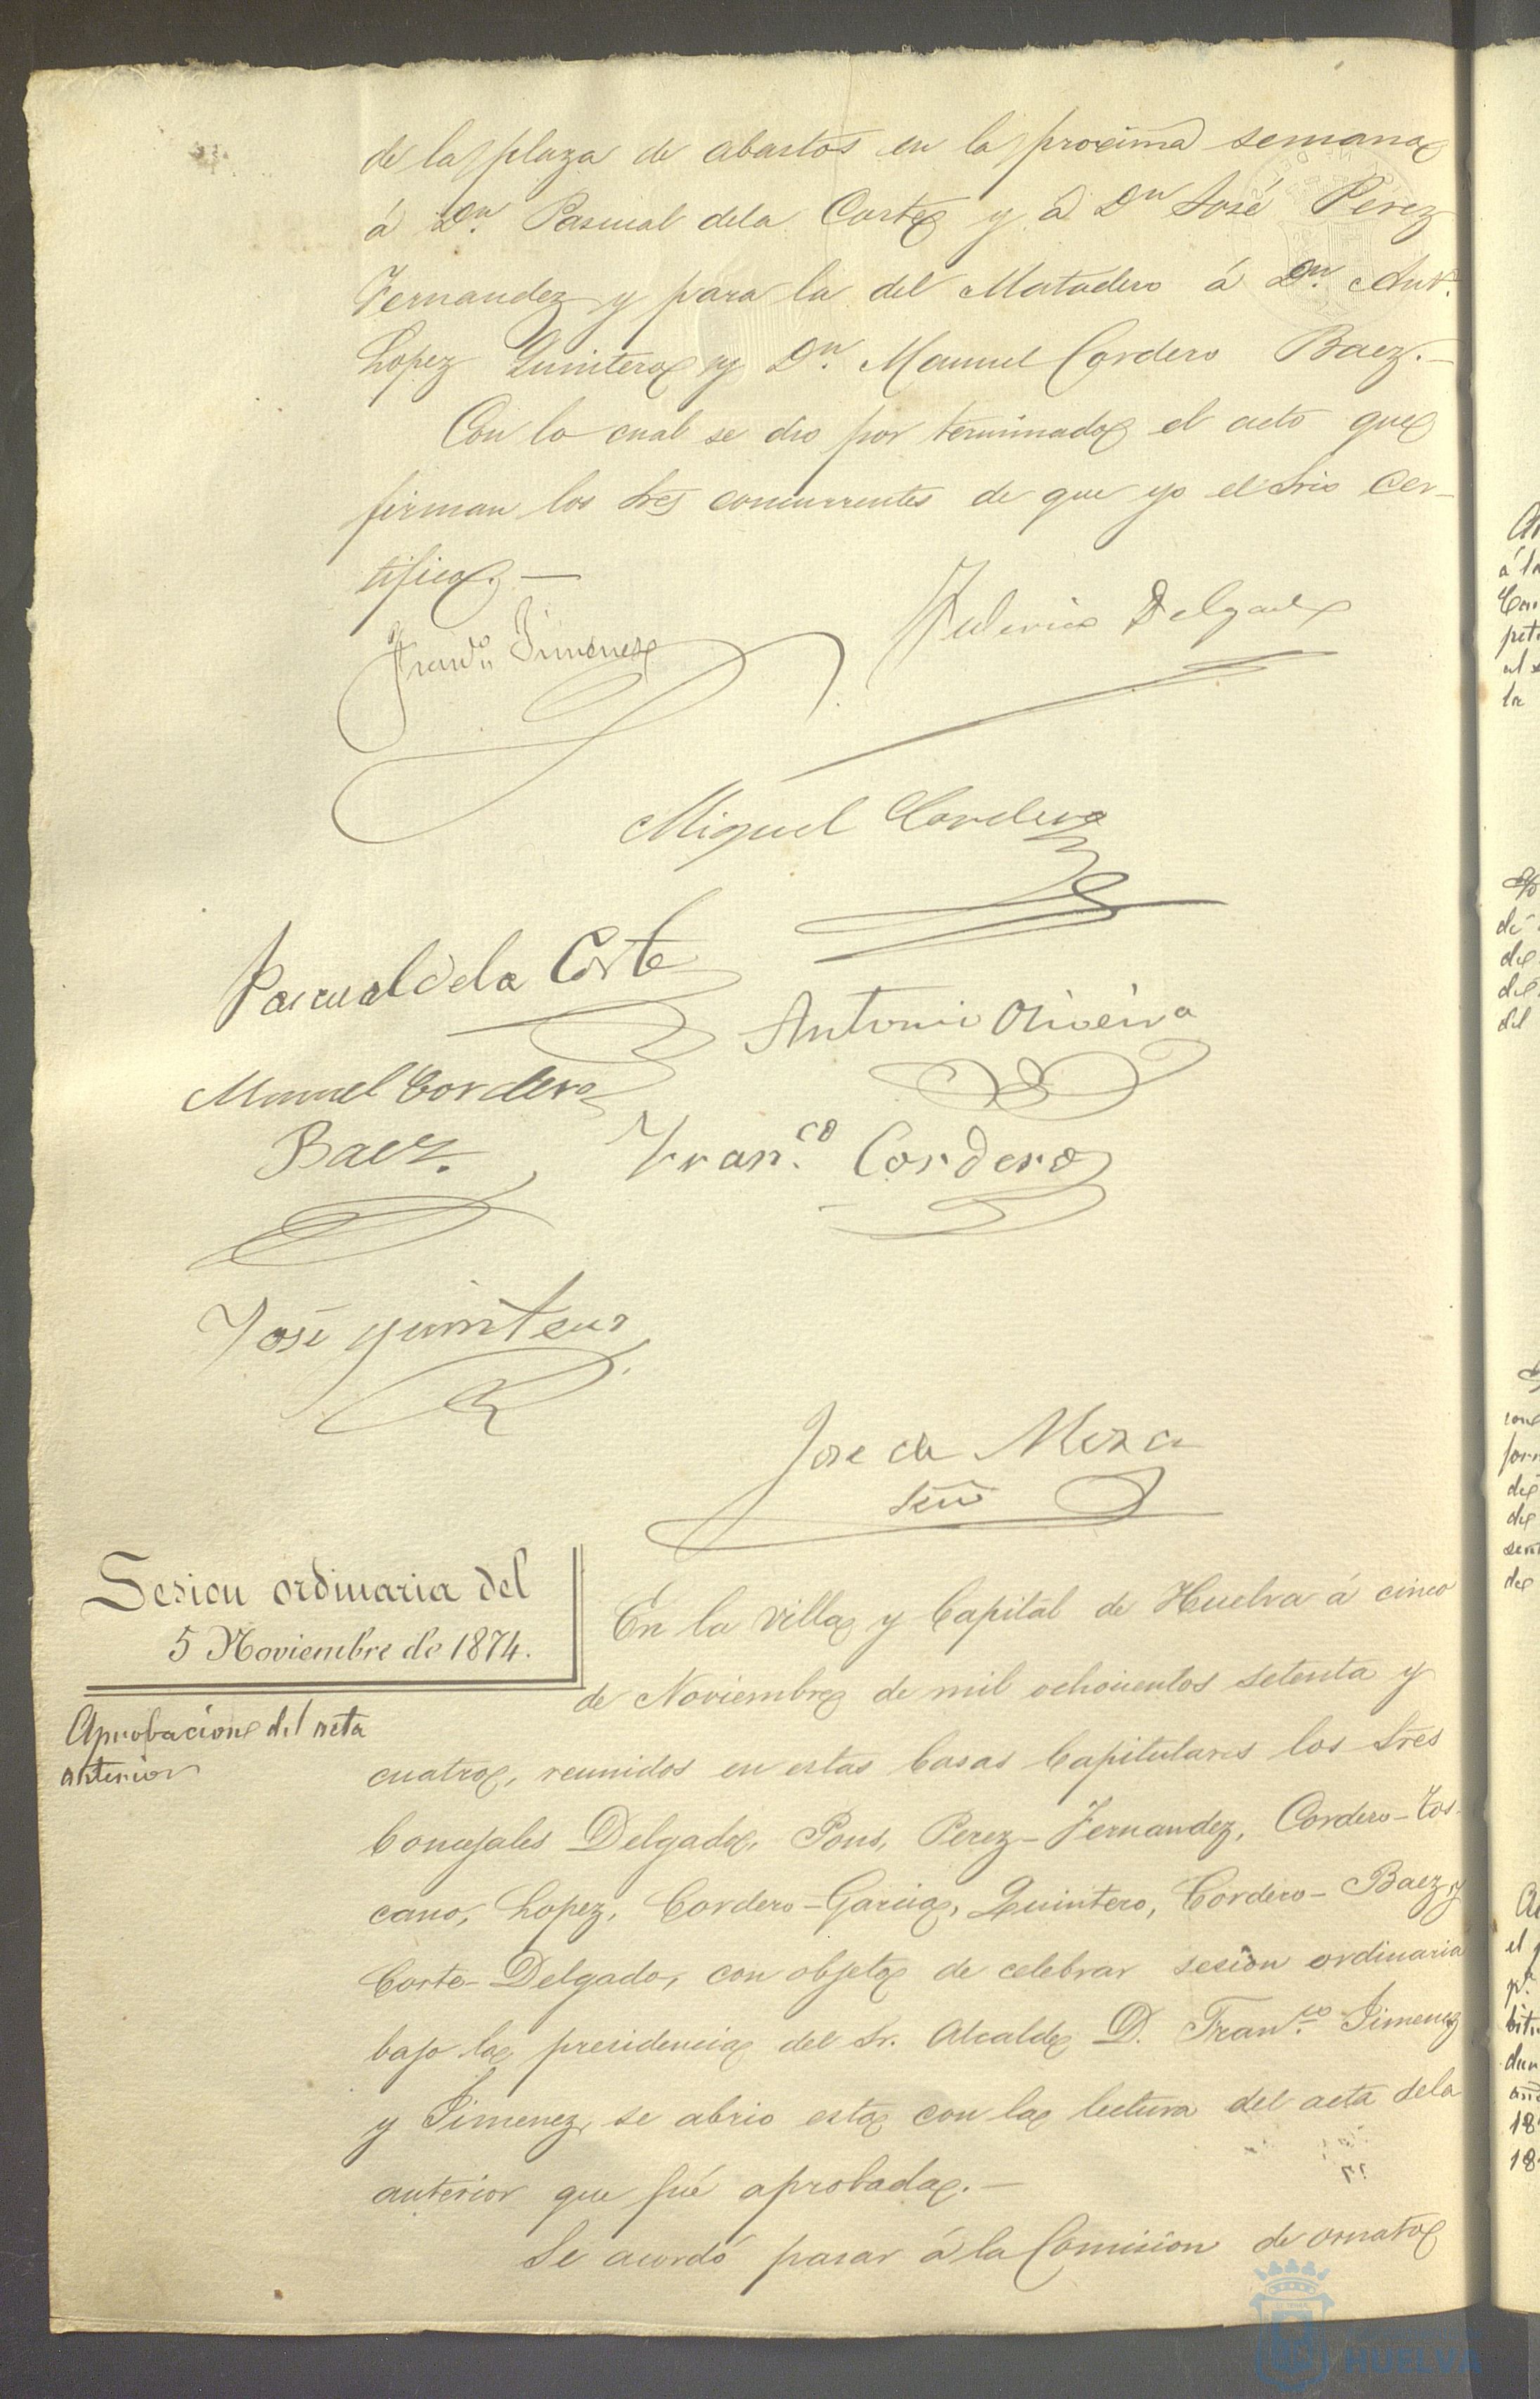 de la plaza de abastos en la proxima semana
á Dn. Pascual dela Corte y á Dn José Perez
Fernandez y para la del Matadero á Dn. Anto.
Lopez Quintero y Dn. Manuel Cordero Baez.—
Con lo cual se dio por terminado el acto que
firman los Sres concurrentes de que yo el Srio cer-
tifico.—
Franco Jimenez
Federico Delgado
Miguel Cordero
Pascual dela Corte
Antonio Oliveira
Manuel Cordero
Baez.
Fran.co Cordero
José Quintero
Jose de Meza
Srio
Sesion ordinaria del
5 Noviembre de 1874.
Aprobacion del acta
anterior
En la villa y Capital de Huelva á cinco
de Noviembre de mil ochocientos setenta y
cuatro, reunidos en estas Casas Capitulares los Sres
Concejales Delgado, Pons, Perez-Fernandez, Cordero-Tos-
cano, Lopez, Cordero-Garcia, Quintero, Cordero-Baez y
Corte-Delgado, con objeto de celebrar sesion ordinaria
bajo la presidencia del Sr. Alcalde D. Fran.co Jimenez
y Jimenez, se abrio esta con la lectura del acta dela
anterior que fué aprobada.—
Se acordó pasar á la Comision de ornato
HUELVA